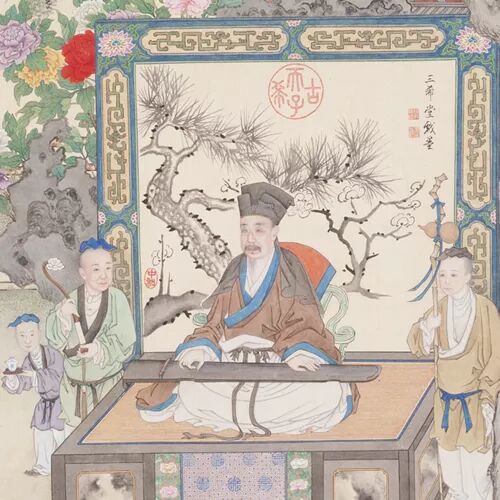 三希堂戲墨
古希天子